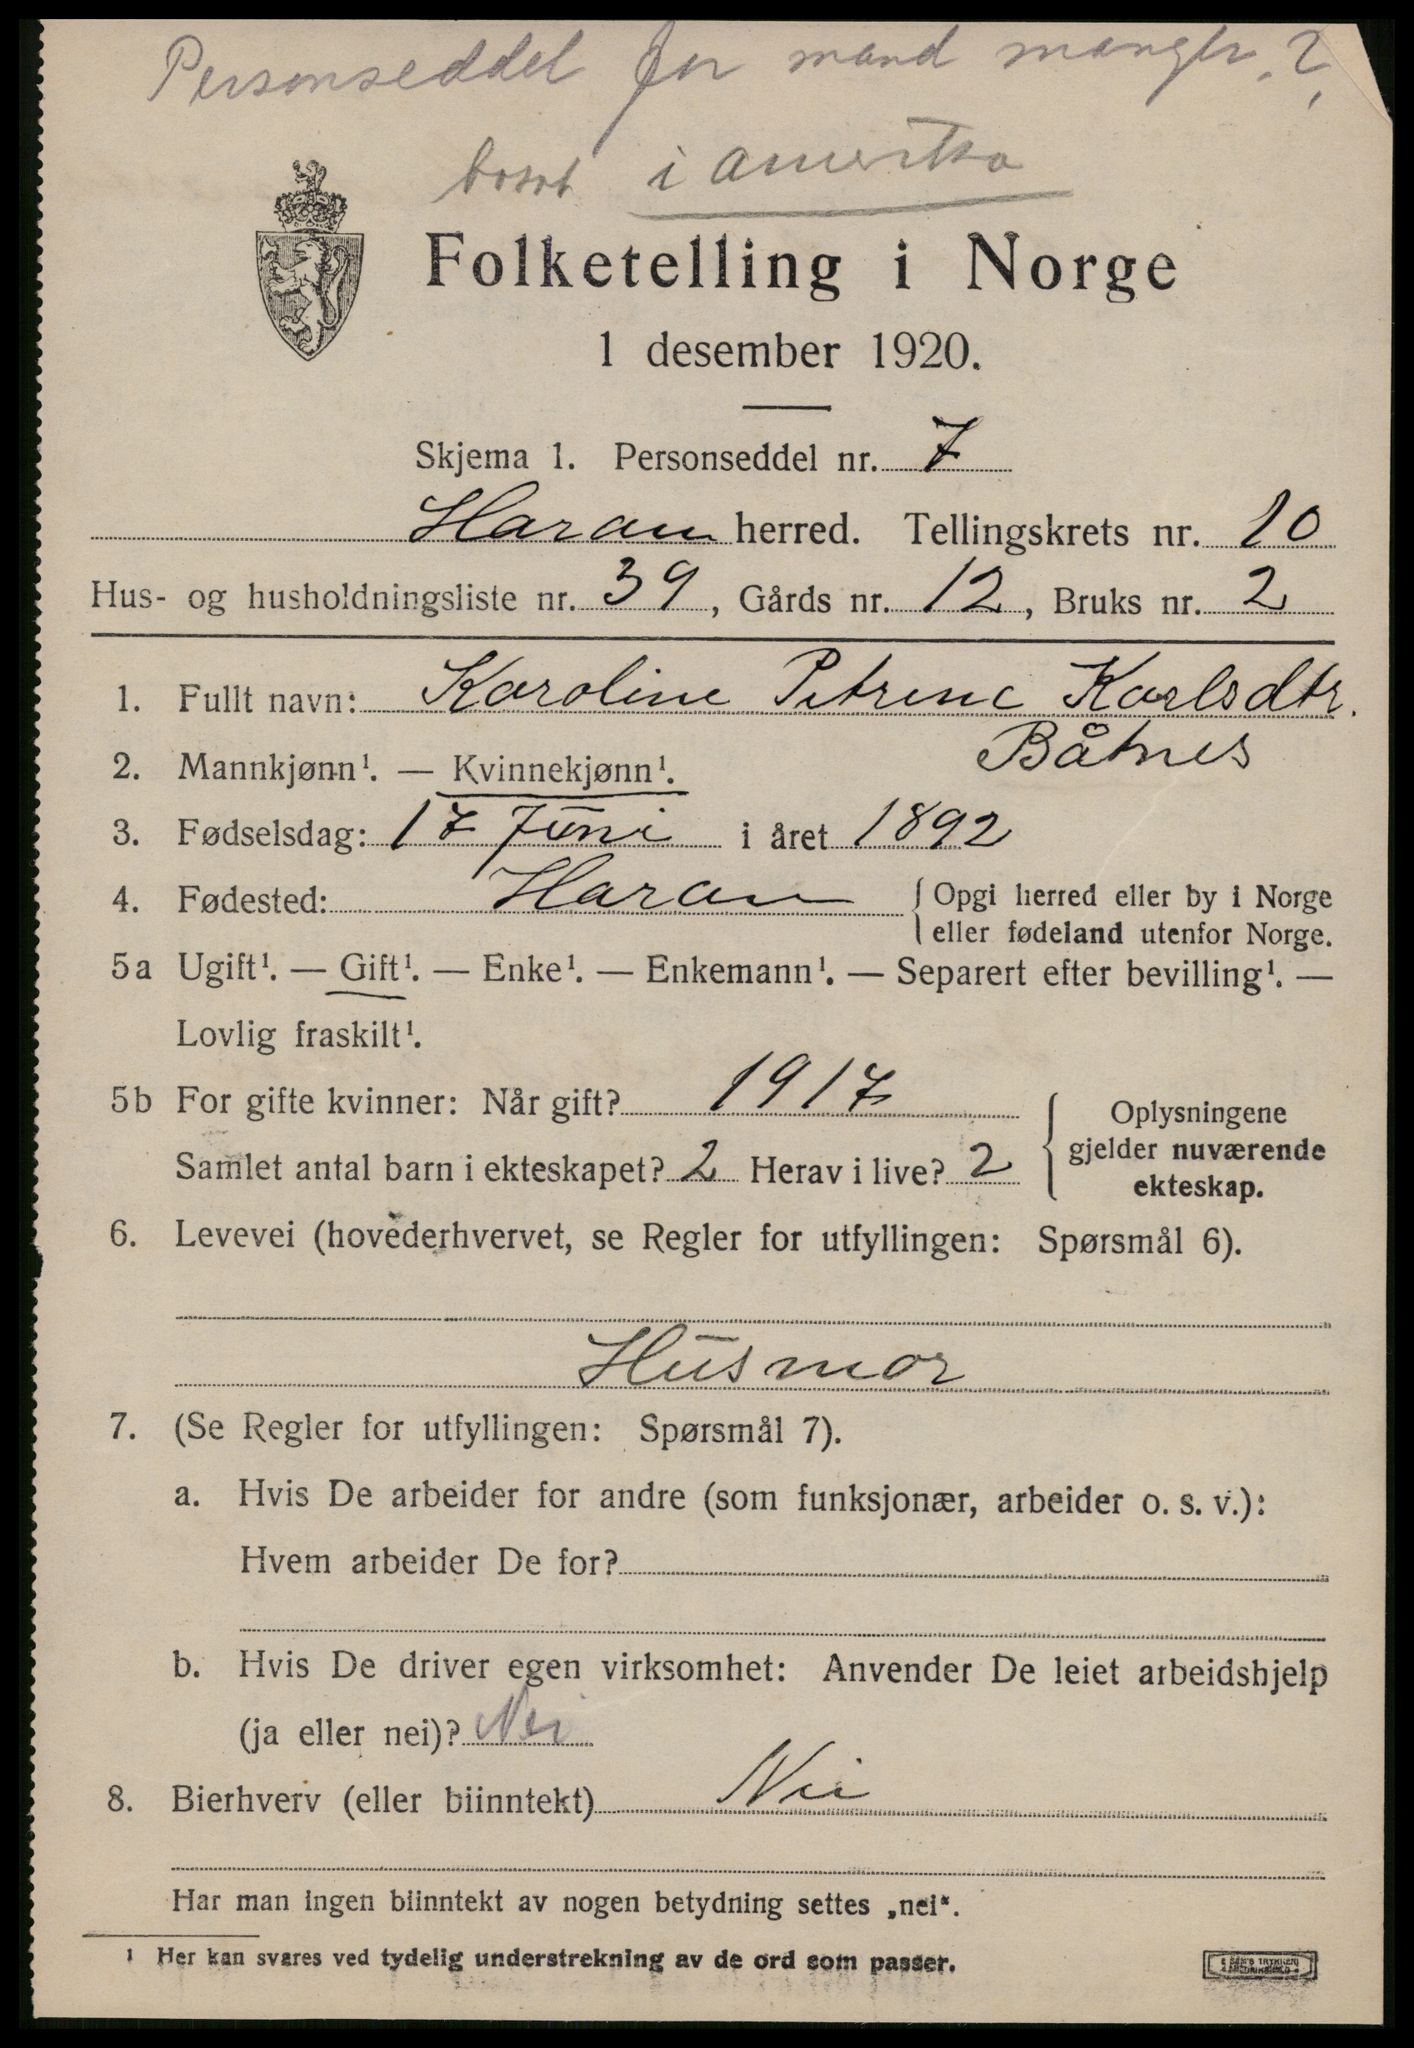 Personseddel for mand mangler. ?
bosat i amerika
Folketelling i Norge
1 desember 1920.
Skjema 1. Personseddel nr. 7
Haram herred. Tellingskrets nr. 10
Hus- og husholdningsliste nr. 39, Gårds nr. 12, Bruks nr. 2
1. Fullt navn: Karoline Petrine Karlsdtr.
Båtnes
2. Mannkjønn¹. — Kvinnekjønn¹.
3. Fødselsdag: 17 Juni i året 1892
4. Fødested: Haram { Opgi herred eller by i Norge
eller fødeland utenfor Norge.
5a Ugift¹. — Gift¹. — Enke¹. — Enkemann¹. — Separert efter bevilling¹. —
Lovlig fraskilt¹.
5b For gifte kvinner: Når gift? 1917
Samlet antal barn i ekteskapet? 2 Herav i live? 2
{ Oplysningene
gjelder nuværende
ekteskap.
6. Levevei (hovederhvervet, se Regler for utfyllingen: Spørsmål 6).
Husmor
7. (Se Regler for utfyllingen: Spørsmål 7).
a. Hvis De arbeider for andre (som funksjonær, arbeider o. s. v.):
Hvem arbeider De for?
b. Hvis De driver egen virksomhet: Anvender De leiet arbeidshjelp
(ja eller nei)? Nei
8. Bierhverv (eller biinntekt) Nei
Har man ingen biinntekt av nogen betydning settes „nei“.
1 Her kan svares ved tydelig understrekning av de ord som passer.